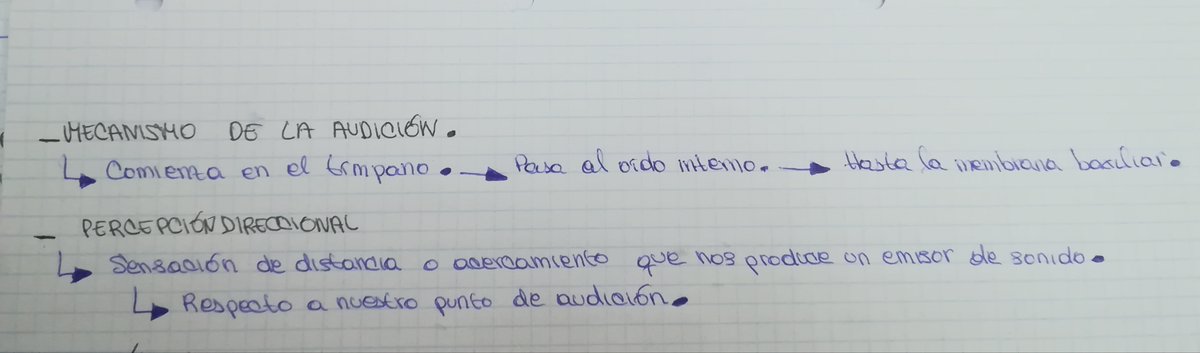 - MECANISMO DE LA AUDICIÓN.
↳ Comienza en el tímpano. → Pasa al oído interno. → Hasta la membrana basiliar.
- PERCEPCIÓN DIRECCIONAL
↳ Sensación de distancia o acercamiento que nos produce un emisor de sonido.
↳ Respecto a nuestro punto de audición.